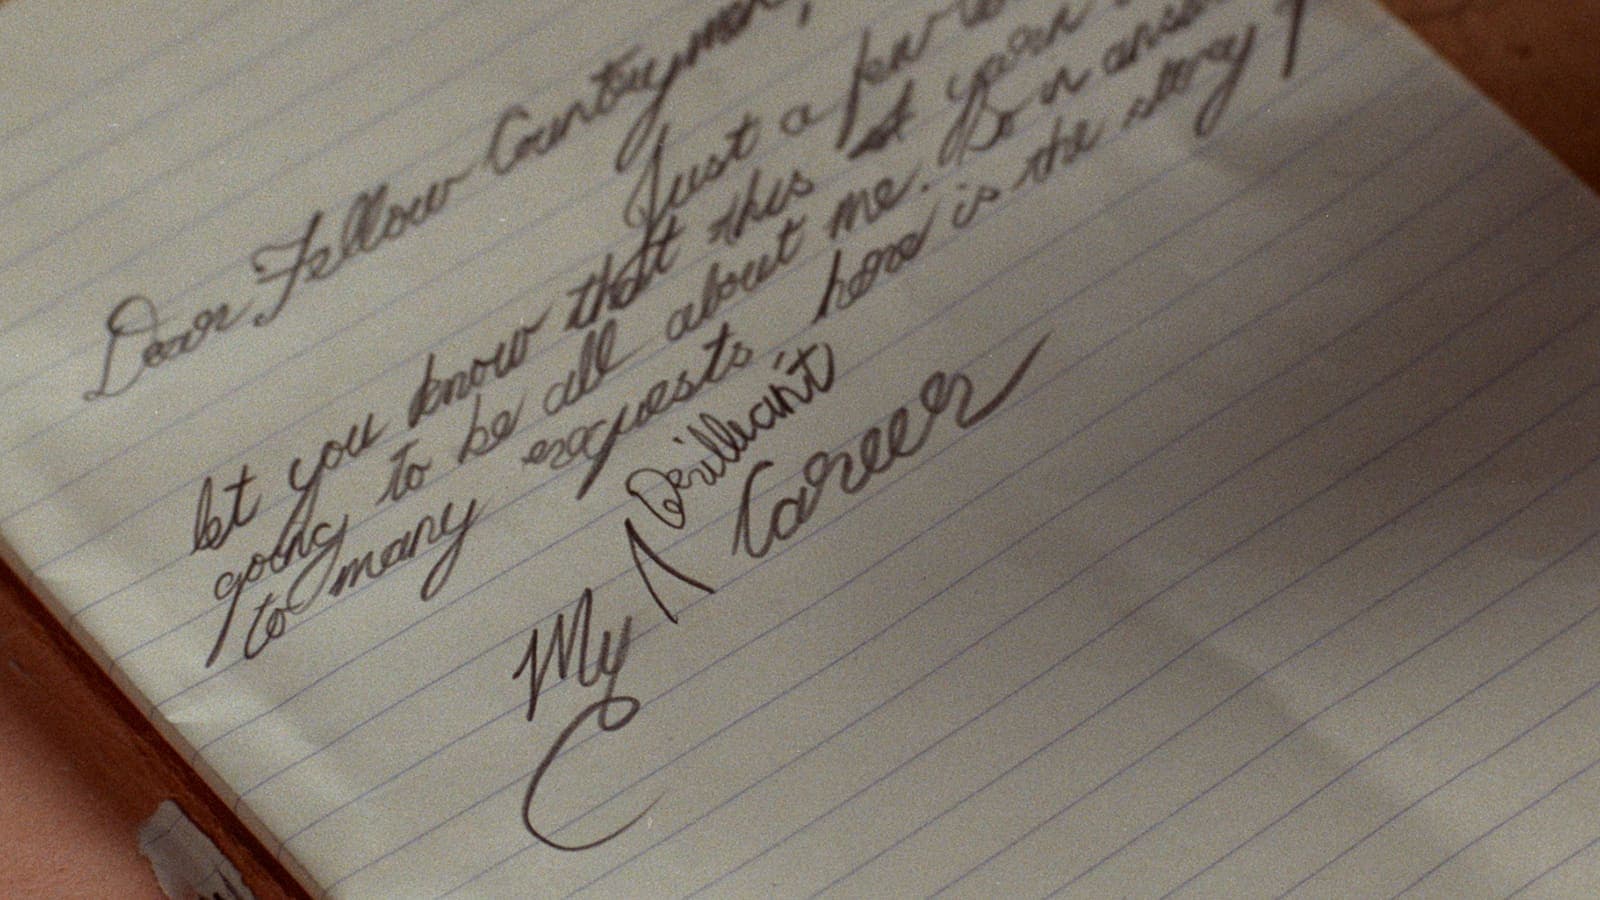 Dear Fellow Countrymen,
Just a few
let you know that this yarn
going to be all about me. So in
to many requests, here is the story
My Brilliant Career
C